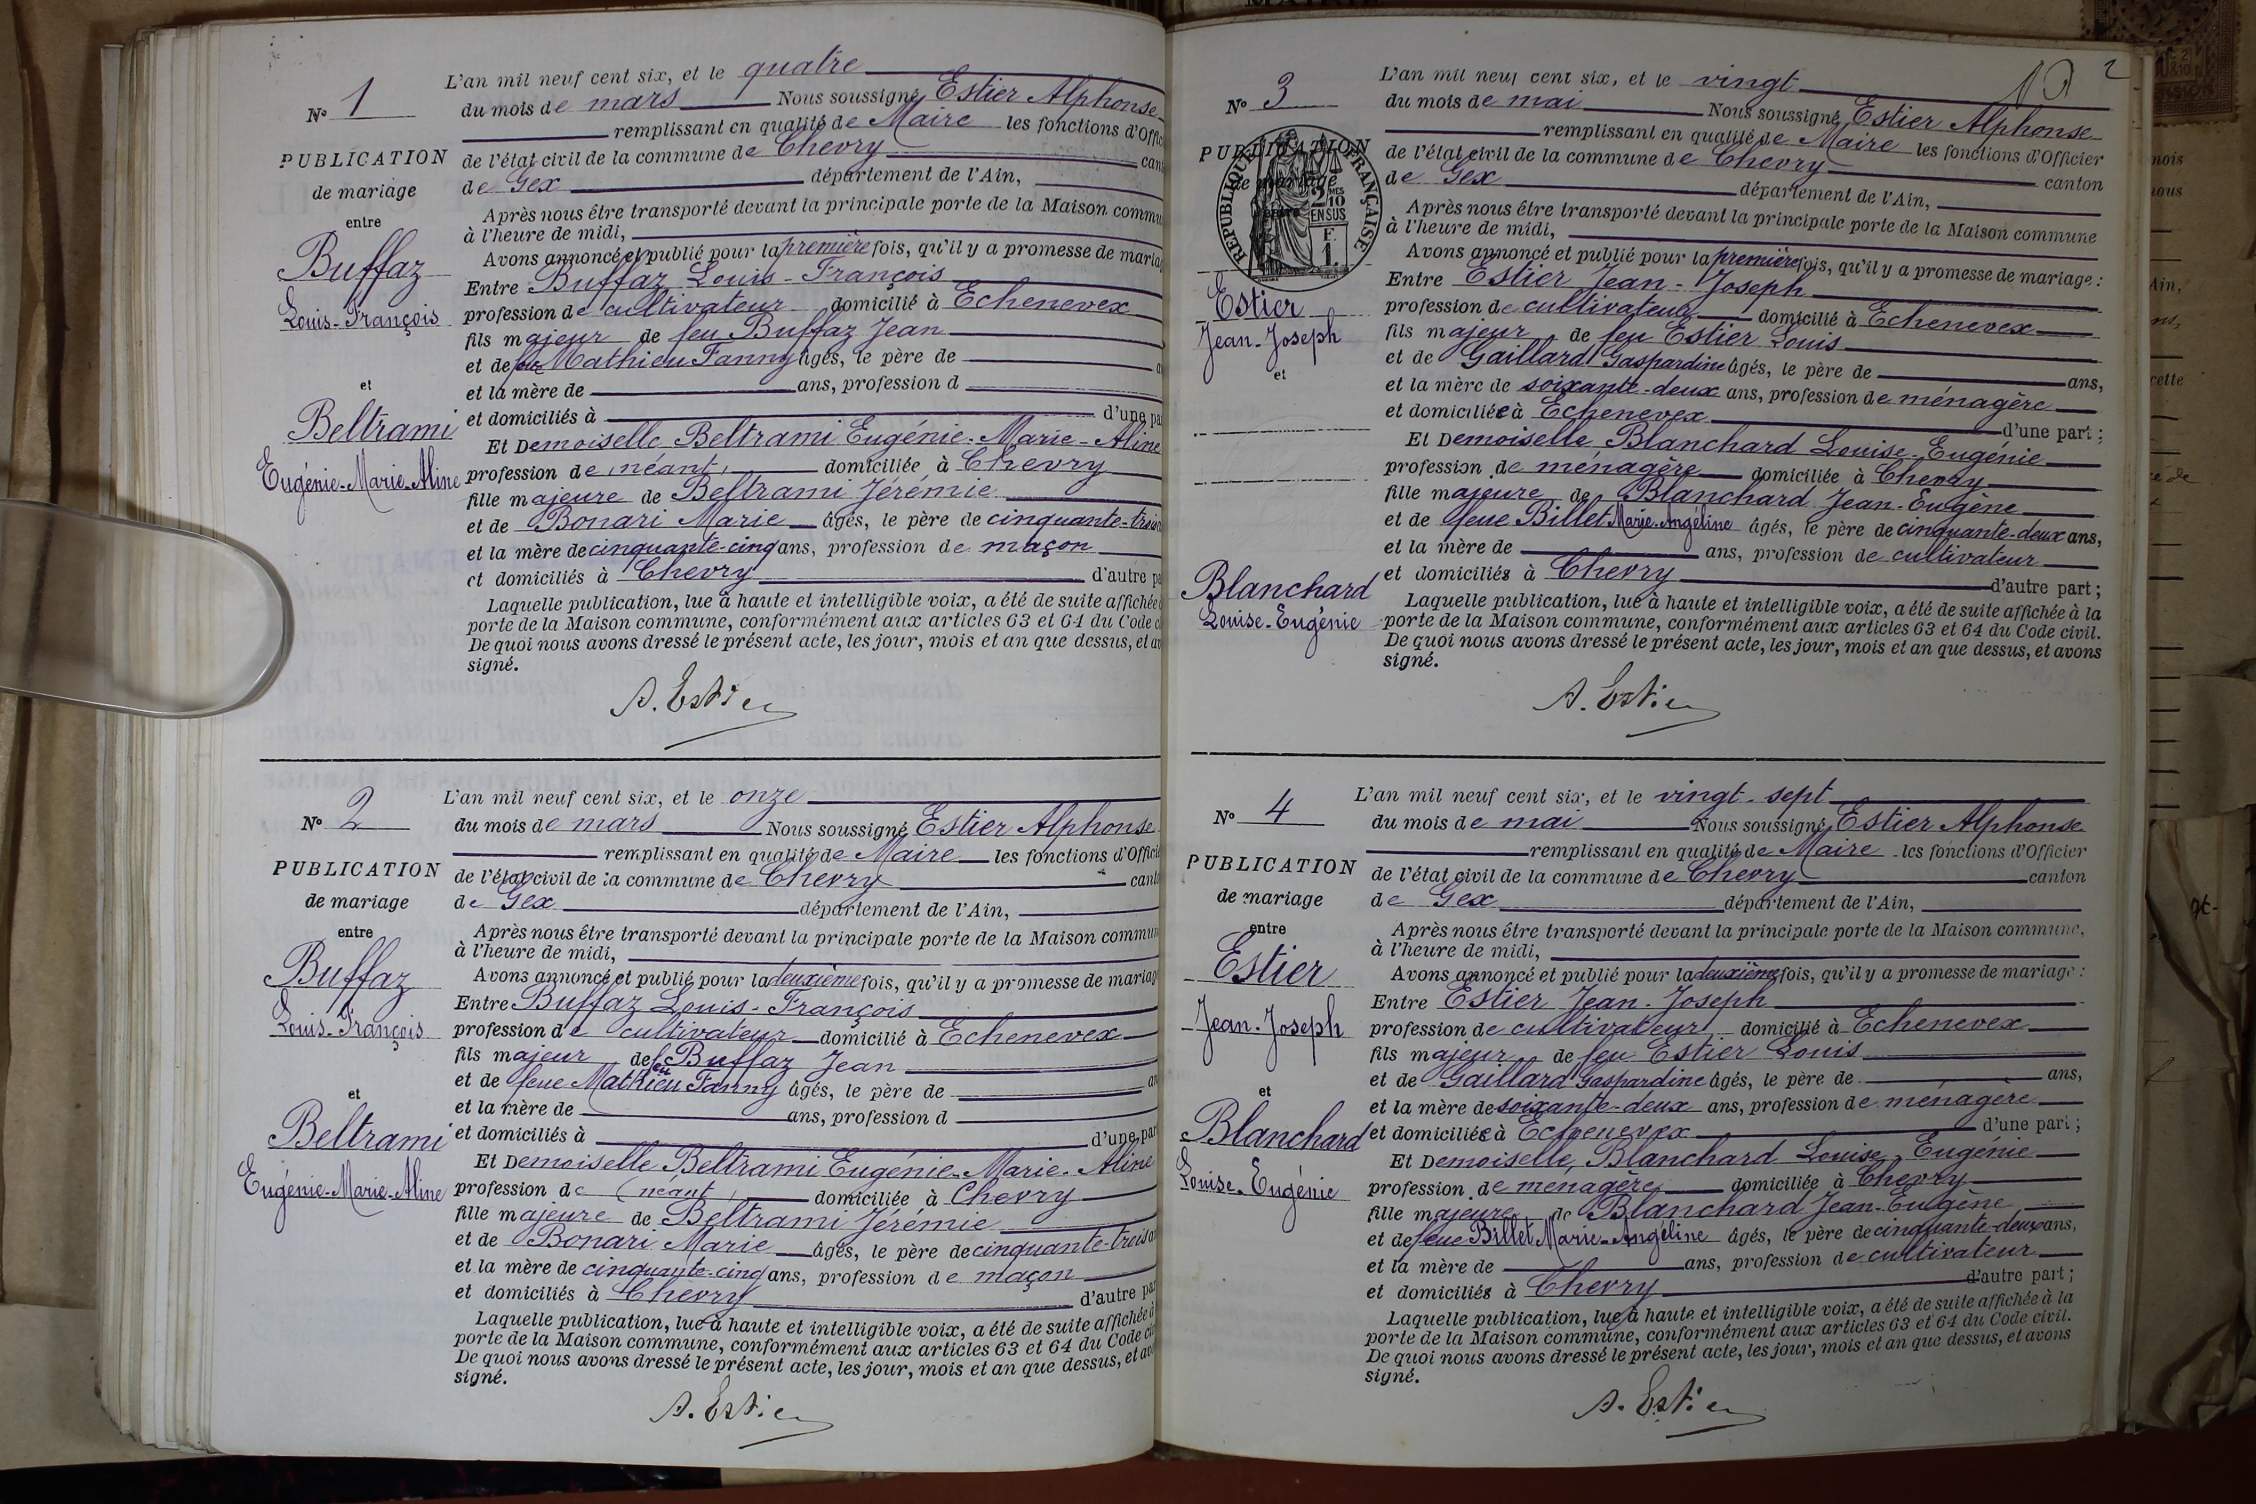 N° 1
PUBLICATION
de mariage
entre
Buffaz
Louis-François
et
Beltrami
Eugénie-Marie-Aline
L'an mil neuf cent six, et le quatre
du mois de mars Nous soussigné Estier Alphonse
remplissant en qualité de Maire les fonctions d'Offic
de l'état civil de la commune de Chevry cant
de Gex département de l'Ain,
Après nous être transporté devant la principale porte de la Maison commu
à l'heure de midi,
Avons annoncé et publié pour la première fois, qu'il y a promesse de maria
Entre Buffaz Louis-François
profession de cultivateur domicilié à Echenevex
fils majeur de feu Buffaz Jean
et de feue Mathieu Fanny âgés, le père de a
et la mère de ans, profession d
et domiciliés à d'une pa
Et Demoiselle Beltrami Eugénie-Marie-Aline
profession de (néant) domiciliée à Chevry
fille majeure de Beltrami Jérémie
et de Bonari Marie âgés, le père de cinquante-trois
et la mère de cinquante-cinq ans, profession de maçon
et domiciliés à Chevry d'autre pa
Laquelle publication, lue à haute et intelligible voix, a été de suite affichée
porte de la Maison commune, conformément aux articles 63 et 64 du Code c
De quoi nous avons dressé le présent acte, les jour, mois et an que dessus, et av
signé.
A. Estier
N° 2
PUBLICATION
de mariage
entre
Buffaz
Louis-François
et
Beltrami
Eugénie-Marie-Aline
L'an mil neuf cent six, et le onze
du mois de mars Nous soussigné Estier Alphonse
remplissant en qualité de Maire les fonctions d'Offici
de l'état civil de la commune de Chevry canto
de Gex département de l'Ain,
Après nous être transporté devant la principale porte de la Maison commun
à l'heure de midi,
Avons annoncé et publié pour la deuxième fois, qu'il y a promesse de mariag
Entre Buffaz Louis-François
profession de cultivateur domicilié à Echenevex
fils majeur de feu Buffaz Jean
et de feue Mathieu Fanny âgés, le père de an
et la mère de ans, profession d
et domiciliés à d'une par
Et Demoiselle Beltrami Eugénie-Marie-Aline
profession de (néant) domiciliée à Chevry
fille majeure de Beltrami Jérémie
et de Bonari Marie âgés, le père de cinquante-trois an
et la mère de cinquante-cinq ans, profession de maçon
et domiciliés à Chevry d'autre par
Laquelle publication, lue à haute et intelligible voix, a été de suite affichée à
porte de la Maison commune, conformément aux articles 63 et 64 du Code ci
De quoi nous avons dressé le présent acte, les jour, mois et an que dessus, et av
signé.
A. Estier
2
N° 3
PUBLICATION
de mariage
entre
RÉPUBLIQUE FRANÇAISE
2 MES
10
EN SUS
F.
1.
Estier
Jean-Joseph
et
Blanchard
Louise-Eugénie
L'an mil neuf cent six, et le vingt
du mois de mai Nous soussigné Estier Alphonse
remplissant en qualité de Maire les fonctions d'Officier
de l'état civil de la commune de Chevry canton
de Gex département de l'Ain,
Après nous être transporté devant la principale porte de la Maison commune
à l'heure de midi,
Avons annoncé et publié pour la première fois, qu'il y a promesse de mariage :
Entre Estier Jean-Joseph
profession de cultivateur domicilié à Echenevex
fils majeur de feu Estier Louis
et de Gaillard Gaspardine âgés, le père de ans,
et la mère de soixante-deux ans, profession de ménagère
et domiciliée à Echenevex d'une part ;
Et Demoiselle Blanchard Louise-Eugénie
profession de ménagère domiciliée à Chevry
fille majeure de Blanchard Jean-Eugène
et de feue Billet Marie-Angéline âgés, le père de cinquante-deux ans,
et la mère de ans, profession de cultivateur
et domiciliés à Chevry d'autre part ;
Laquelle publication, lue à haute et intelligible voix, a été de suite affichée à la
porte de la Maison commune, conformément aux articles 63 et 64 du Code civil.
De quoi nous avons dressé le présent acte, les jour, mois et an que dessus, et avons
signé.
A. Estier
N° 4
PUBLICATION
de mariage
entre
Estier
Jean-Joseph
et
Blanchard
Louise-Eugénie
L'an mil neuf cent six, et le vingt-sept
du mois de mai Nous soussigné Estier Alphonse
remplissant en qualité de Maire les fonctions d'Officier
de l'état civil de la commune de Chevry canton
de Gex département de l'Ain,
Après nous être transporté devant la principale porte de la Maison commune,
à l'heure de midi,
Avons annoncé et publié pour la deuxième fois, qu'il y a promesse de mariage :
Entre Estier Jean-Joseph
profession de cultivateur domicilié à Echenevex
fils majeur de feu Estier Louis
et de Gaillard Gaspardine âgés, le père de ans,
et la mère de soixante-deux ans, profession de ménagère
et domiciliée à Echenevex d'une part ;
Et Demoiselle Blanchard Louise-Eugénie
profession de ménagère domiciliée à Chevry
fille majeure de Blanchard Jean-Eugène
et de feue Billet Marie-Angéline âgés, le père de cinquante-deux ans,
et la mère de ans, profession de cultivateur
et domiciliés à Chevry d'autre part ;
Laquelle publication, lue à haute et intelligible voix, a été de suite affichée à la
porte de la Maison commune, conformément aux articles 63 et 64 du Code civil.
De quoi nous avons dressé le présent acte, les jour, mois et an que dessus, et avons
signé.
A. Estier